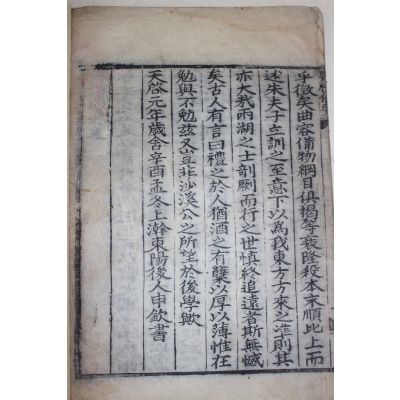 乎徵矣曲容備物綱目俱揭等衰隆殺本末順比上而
述朱夫子立訓之至意下以爲我東方方來之准則其
亦大哉兩湖之士訓劂而行之世愼終追遠者斯無憾
矣古人有言曰禮之於人猶酒之有糱以厚以薄惟在
勉與不勉玆又豈非沙溪公之所望於後學歟
天啓元年歲舍辛酉孟冬上澣東陽後人申欽書